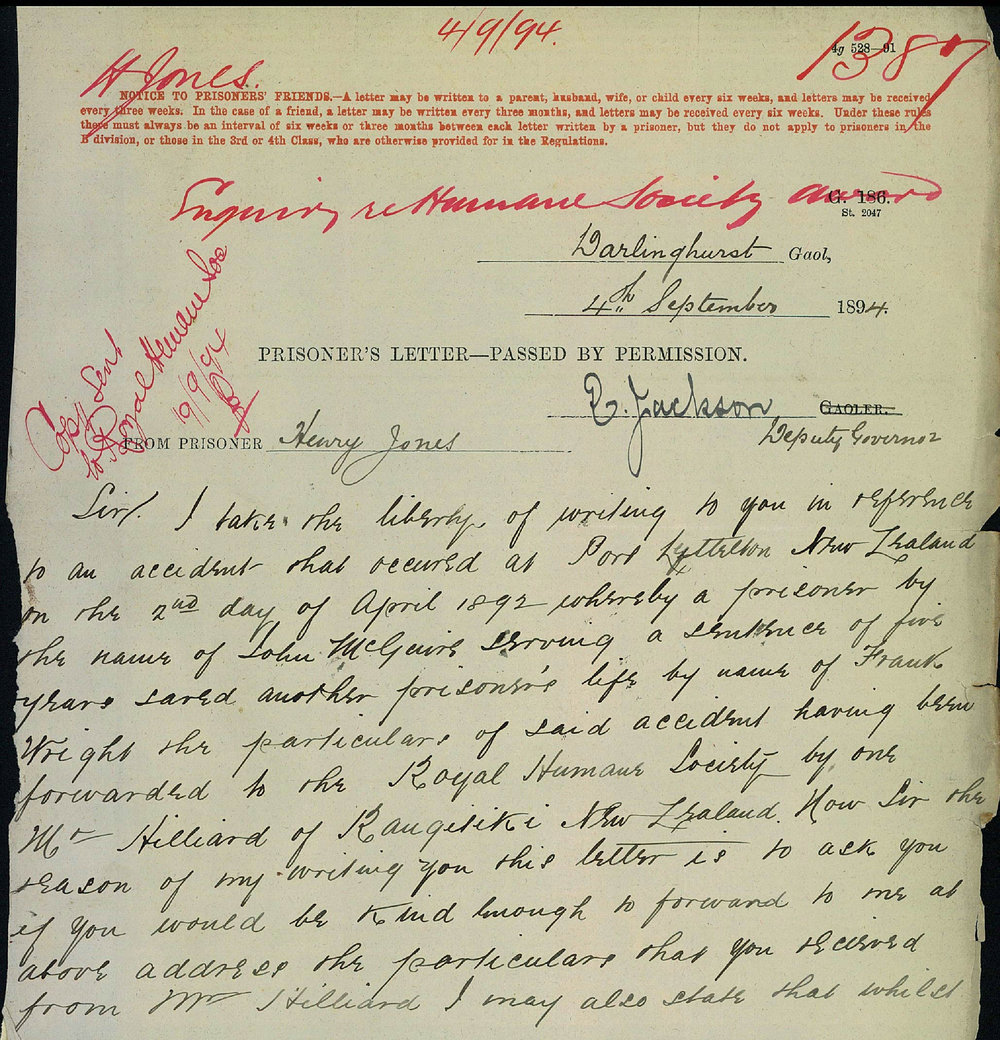 4/9/94.
4g 528—91
1387
H Jones.
NOTICE TO PRISONERS' FRIENDS.—A letter may be written to a parent, husband, wife, or child every six weeks, and letters may be received
every three weeks. In the case of a friend, a letter may be written every three months, and letters may be received every six weeks. Under these rules
there must always be an interval of six weeks or three months between each letter written by a prisoner, but they do not apply to prisoners in the
B division, or those in the 3rd or 4th Class, who are otherwise provided for in the Regulations.
Enquiry re Humane Society award
G. 186.
St. 2047
Darlinghurst Gaol,
4th September 1894.
PRISONER'S LETTER—PASSED BY PERMISSION.
Copy sent
to Royal Humane Soc
19/9/94
R. Jackson, GAOLER.
Deputy Governor
FROM PRISONER Henry Jones
Sir. I take the liberty of writing to you in reference
to an accident that occured at Port Lyttelton New Zealand
on the 2nd day of April 1892 whereby a prisoner by
the name of John McGuire serving a sentence of five
years saved another prisoner's life by name of Frank
Wright the particulars of said accident having been
forwarded to the Royal Humane Society by one
Mr Hilliard of Rangitiki New Zealand. Now Sir the
reason of my writing you this letter is to ask you
if you would be kind enough to forward to me at
above address the particulars that you recieved
from Mr Hilliard I may also state that whilst